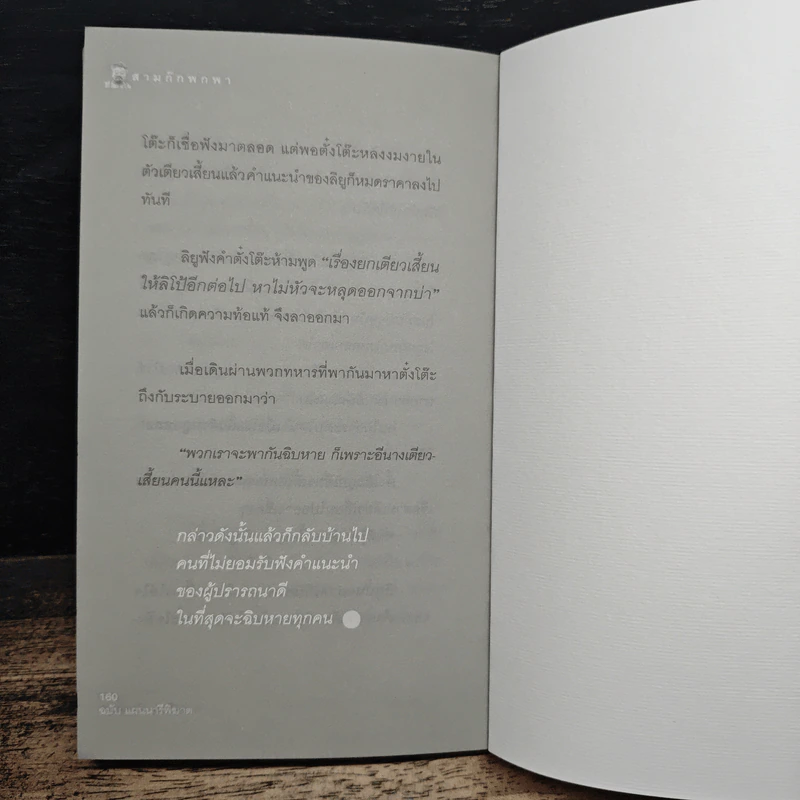 สามก๊กพกพา
โต๊ะก็เชื่อฟังมาตลอด แต่พอตั๋งโต๊ะหลงงมงายใน
ตัวเตียวเสี้ยนแล้วคำแนะนำของลิยูก็หมดราคาลงไป
ทันที
ลิยูฟังคำตั๋งโต๊ะห้ามพูด “เรื่องยกเตียวเสี้ยน
ให้ลิโป้อีกต่อไป หาไม่หัวจะหลุดออกจากบ่า”
แล้วก็เกิดความท้อแท้ จึงลาออกมา
เมื่อเดินผ่านพวกทหารที่พากันมาหาตั๋งโต๊ะ
ถึงกับระบายออกมาว่า
“พวกเราจะพากันฉิบหาย ก็เพราะอีนางเตียว-
เสี้ยนคนนี้แหละ”
กล่าวดังนั้นแล้วก็กลับบ้านไป
คนที่ไม่ยอมรับฟังคำแนะนำ
ของผู้ปรารถนาดี
ในที่สุดจะฉิบหายทุกคน
160
ฉบับ แผนนารีพิฆาต